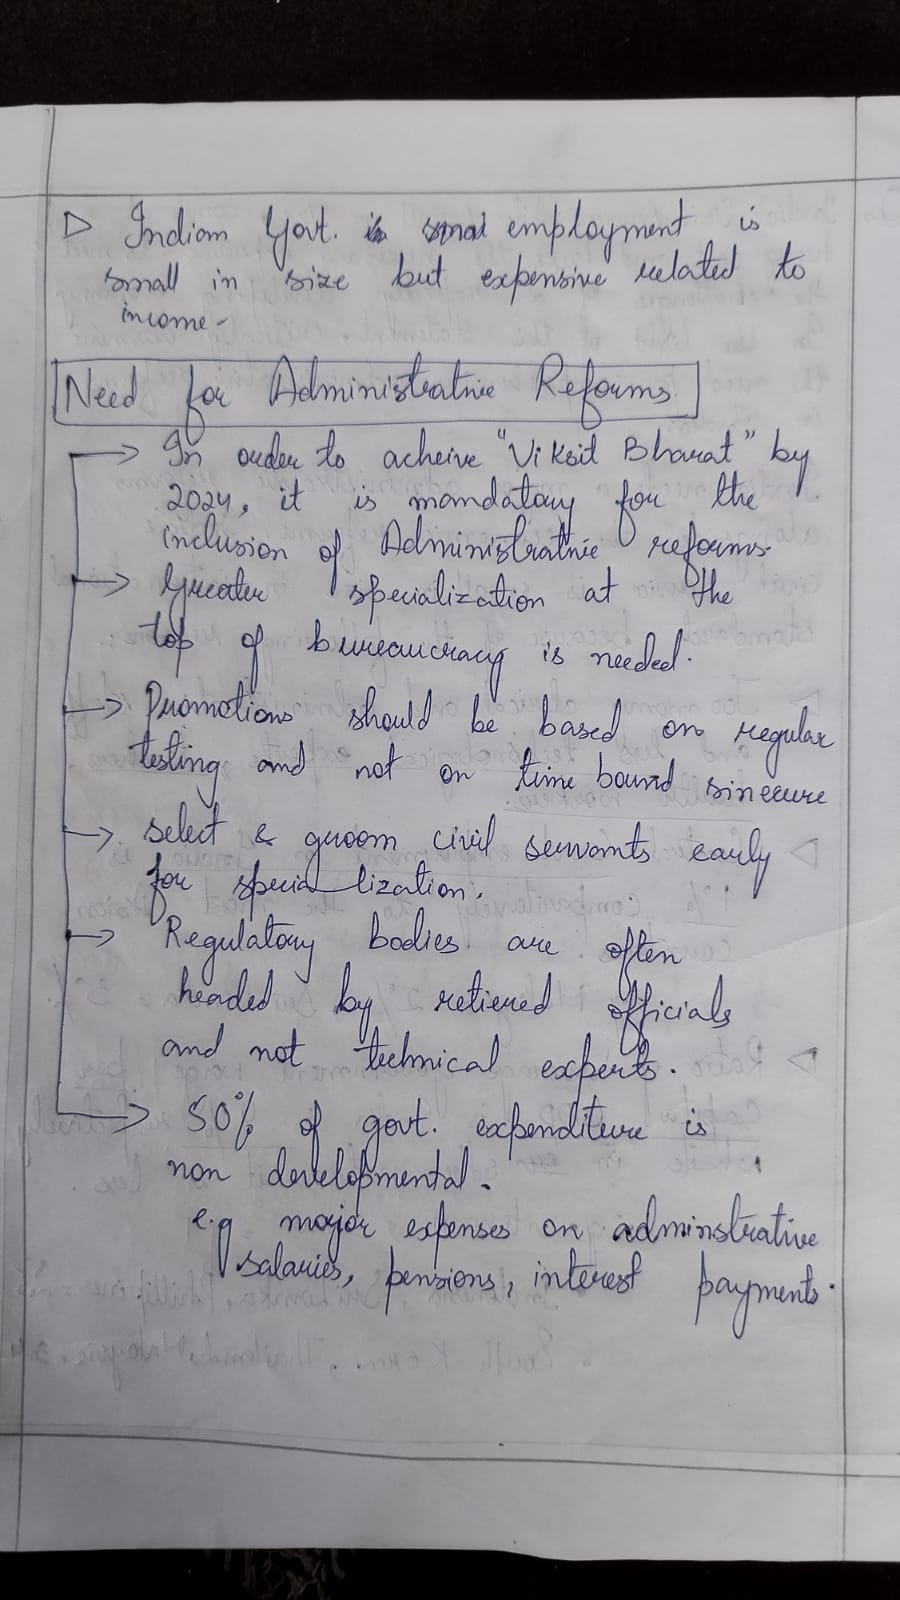 ▷ Indian Govt. is smal employment is
small in size but expensive related to
income-
Need for Administrative Reforms
→ In order to acheive "Viksit Bharat" by
2024, it is mandatory for the
inclusion of Administrative reforms.
→ Greater specialization at the
top of bureaucracy is needed.
→ Promotions should be based on regular
testing and not on time bound sinecure
→ select & groom civil servants early
for specialization.
→ Regulatory bodies are often
headed by retiered officials
and not technical experts.
→ 50% of govt. expenditure is
non developmental.
e.g major expenses on adminstrative
salaries, pensions, interest payments.